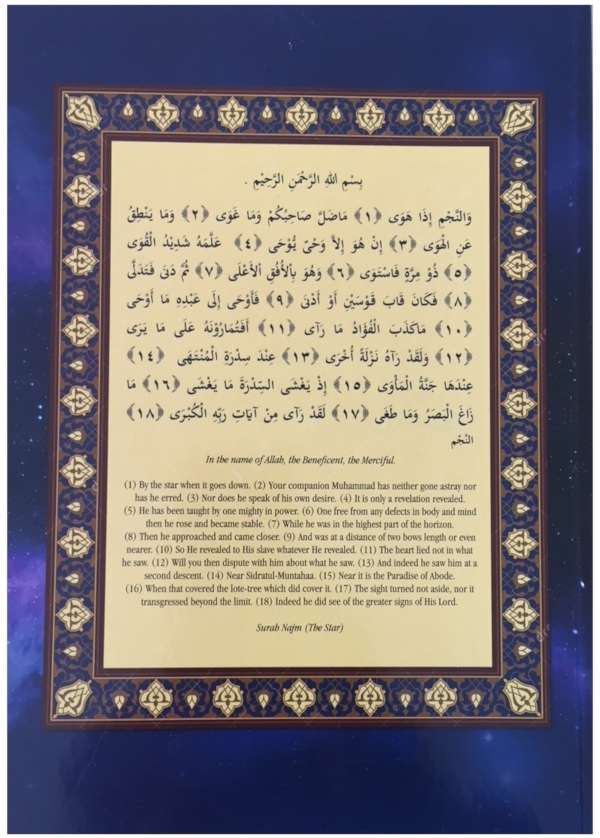 بِسْمِ اللهِ الرَّحْمَنِ الرَّحِيْمِ .
وَالنَّجْمِ إِذَا هَوَى ﴿١﴾ مَاضَلَّ صَاحِبُكُمْ وَمَا غَوَى ﴿٢﴾ وَمَا يَنْطِقُ
عَنِ الْهَوَى ﴿٣﴾ إِنْ هُوَ إِلاَّ وَحْىٌ يُوْحَى ﴿٤﴾ عَلَّمَهُ شَدِيْدُ الْقُوَى
﴿٥﴾ ذُوْ مِرَّةٍ فَاسْتَوَى ﴿٦﴾ وَهُوَ بِالْأُفُقِ الْأَعْلَى ﴿٧﴾ ثُمَّ دَنَى فَتَدَلَّى
﴿٨﴾ فَكَانَ قَابَ قَوْسَيْنِ أَوْ أَدْنَى ﴿٩﴾ فَأَوْحَى إِلَى عَبْدِهِ مَا أَوْحَى
﴿١٠﴾ مَاكَذَبَ الْفُؤَادُ مَا رَآى ﴿١١﴾ أَفَتُمَارُوْنَهُ عَلَى مَا يَرَى
﴿١٢﴾ وَلَقَدْ رَآهُ نَزْلَةً أُخْرَى ﴿١٣﴾ عِنْدَ سِدْرَةِ الْمُنْتَهَى ﴿١٤﴾
عِنْدَهَا جَنَّةُ الْمَأْوَى ﴿١٥﴾ إِذْ يَغْشَى السِّدْرَةَ مَا يَغْشَى ﴿١٦﴾ مَا
زَاغَ الْبَصَرُ وَمَا طَغَى ﴿١٧﴾ لَقَدْ رَآى مِنْ آيَاتِ رَبِّهِ الْكُبْرَى ﴿١٨﴾
النَّجْم
In the name of Allah, the Beneficent, the Merciful.
(1) By the star when it goes down. (2) Your companion Muhammad has neither gone astray nor
has he erred. (3) Nor does he speak of his own desire. (4) It is only a revelation revealed.
(5) He has been taught by one mighty in power. (6) One free from any defects in body and mind
then he rose and became stable. (7) While he was in the highest part of the horizon.
(8) Then he approached and came closer. (9) And was at a distance of two bows length or even
nearer. (10) So He revealed to His slave whatever He revealed. (11) The heart lied not in what
he saw. (12) Will you then dispute with him about what he saw. (13) And indeed he saw him at a
second descent. (14) Near Sidratul-Muntahaa. (15) Near it is the Paradise of Abode.
(16) When that covered the lote-tree which did cover it. (17) The sight turned not aside, nor it
transgressed beyond the limit. (18) Indeed he did see of the greater signs of His Lord.
Surah Najm (The Star)